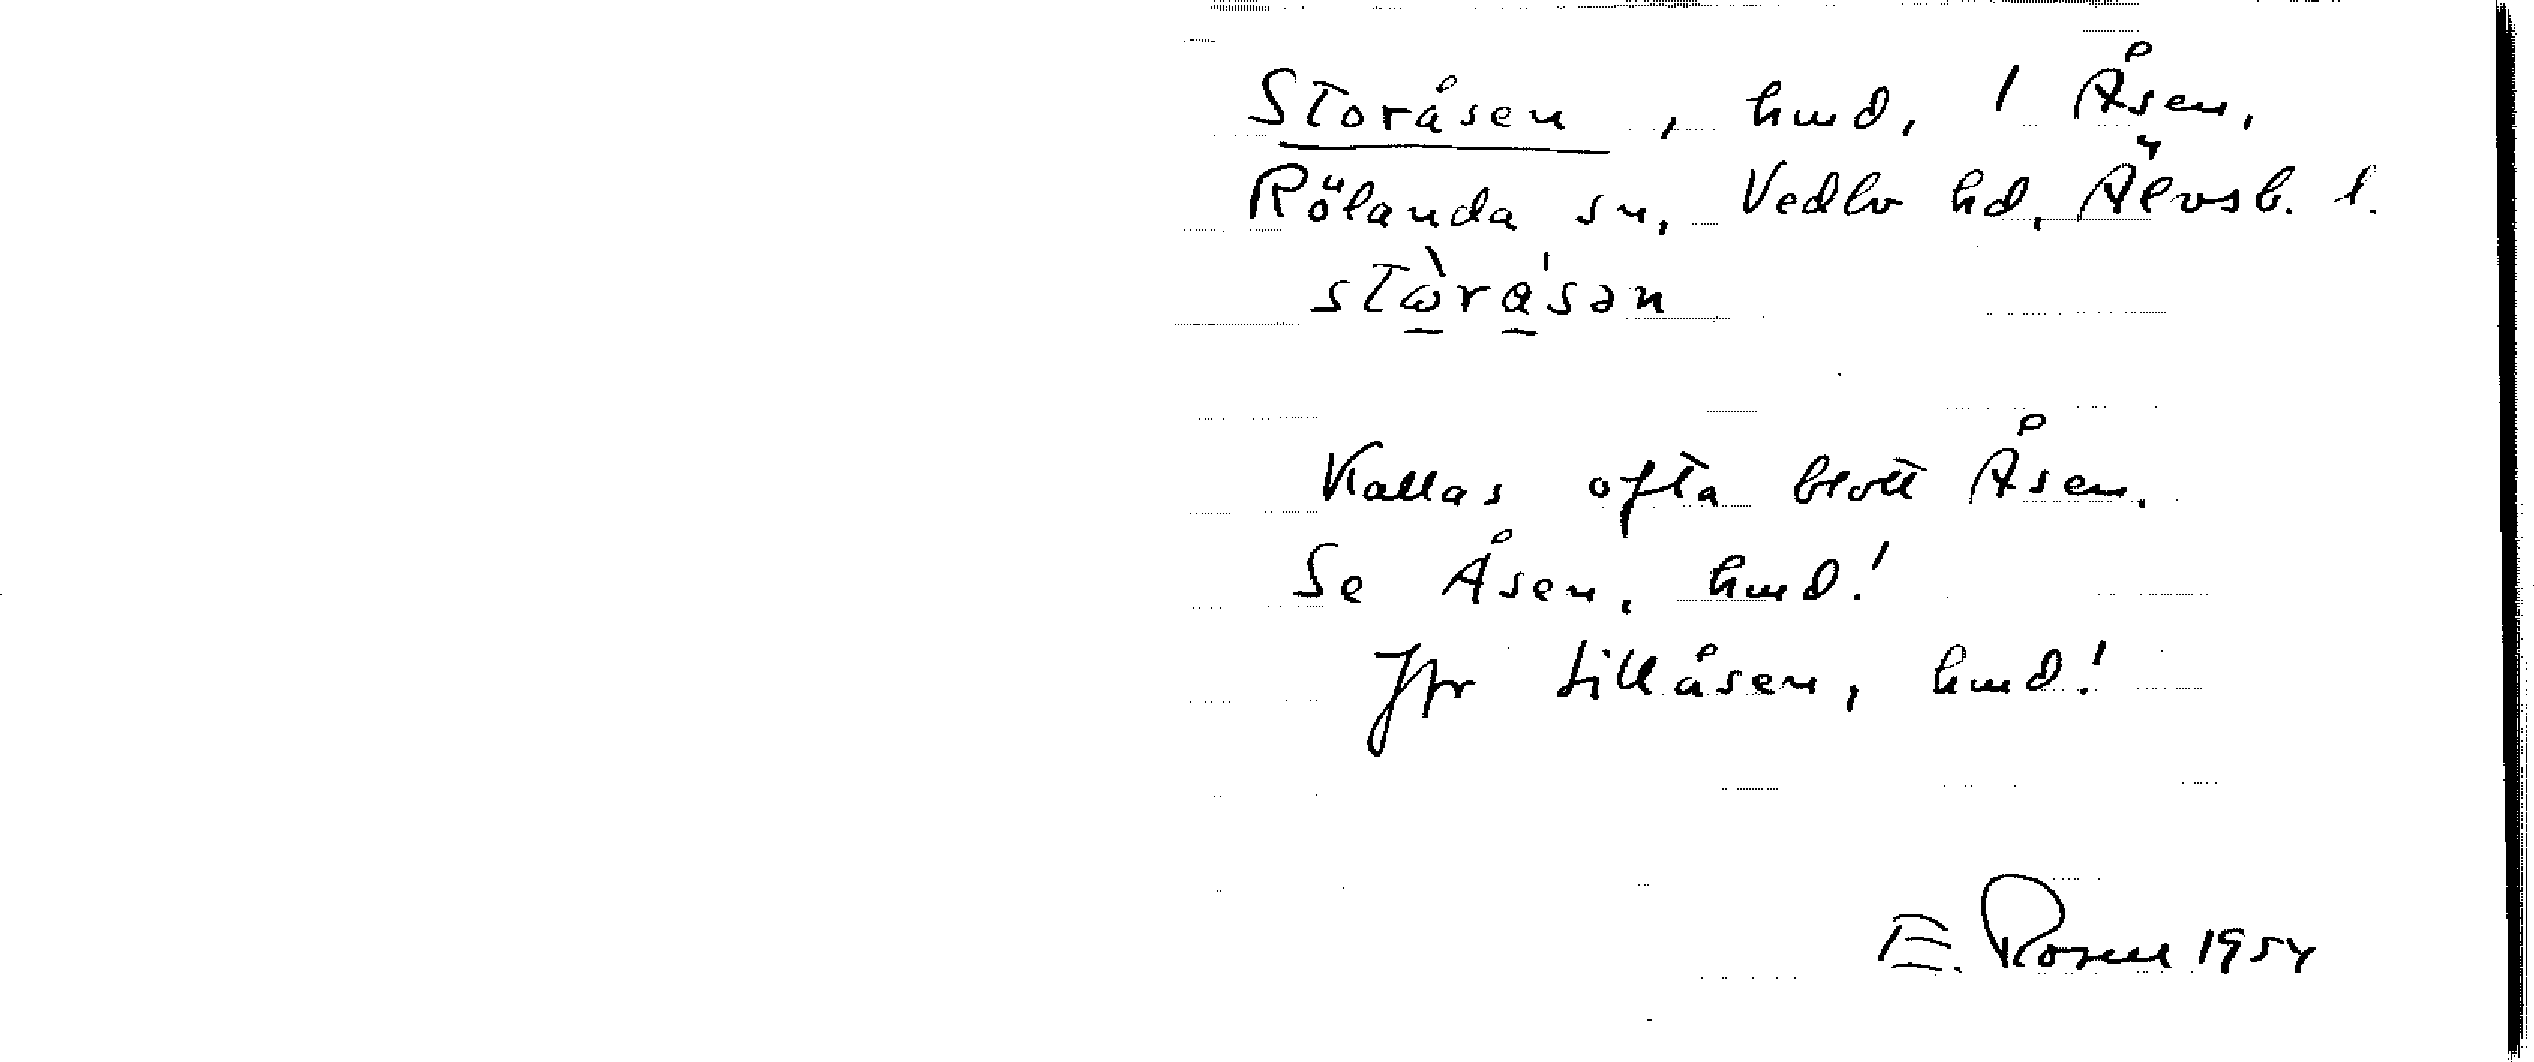 Storåsen, hmd, 1 Åsen,
Rölanda sn, Vedbo hd, Älvsb. l.
stὼrásən
Kallas ofta blott Åsen.
Se Åsen, hmd!
Jfr Lillåsen, hmd!
E. Rosell 1954